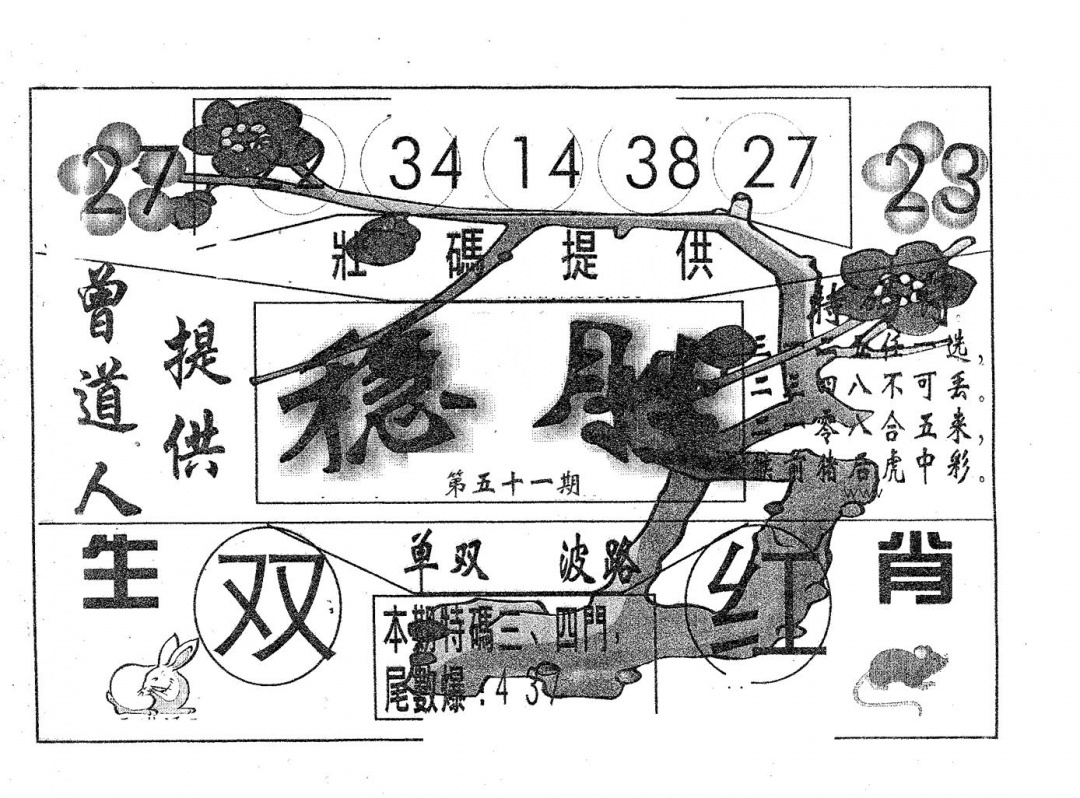 27
34 14 38 27
23
壯碼提供
曾道人
提供
稳胜
第五十一期
特
任一选，
二三四八不可丢。
零八合五来，
猪后虎中彩。
www
单双 波路
生
双
红
肖
本期特碼三、四門，
尾數爆：4 3